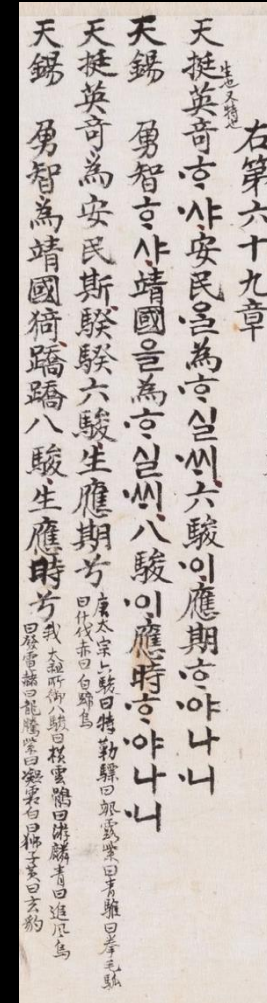 右第六十九章
天挺生也又特也英奇ᄒᆞ·샤安民·을為·ᄒᆞ·실·ᄊᆡ六駿·이應期·ᄒᆞ·야나·니
天錫 勇智ᄒᆞ·샤靖國을為·ᄒᆞ·실·ᄊᆡ八駿·이應時·ᄒᆞ·야나·니
天挺英奇為安民斯騤騤六駿生應期兮
唐太宗六駿曰特勒驃曰颯露紫曰青騅曰拳毛騧
曰什伐赤曰白蹄烏
天錫 勇智為靖國猗蹻蹻八駿生應時兮
我 太祖所御八駿曰橫雲鶻曰游麟青曰追風烏
曰發電赭曰龍騰紫曰凝霜白曰獅子黃曰玄豹